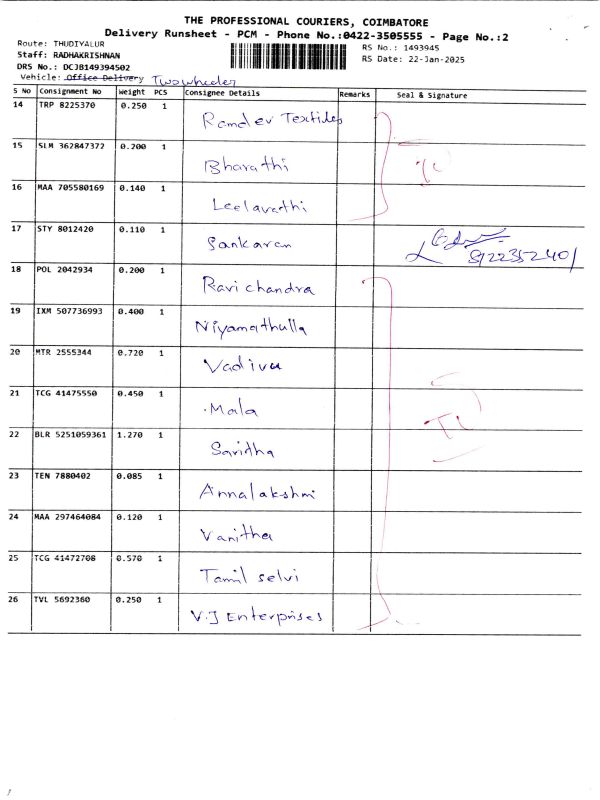 THE PROFESSIONAL COURIERS, COIMBATORE
Delivery Runsheet - PCM - Phone No.:0422-3505555 - Page No.:2
Route: THUDIYALUR
RS No.: 1493945
Staff: RADHAKRISHNAN
RS Date: 22-Jan-2025
DRS No.: DCJB149394502
Vehicle: Office Delivery Two wheeler
S No Consignment No Weight PCS Consignee Details Remarks Seal & Signature
14 TRP 8225370 0.250 1 Ramdev Textiles
15 SLM 362847372 0.200 1 Bharathi
16 MAA 705580169 0.140 1 Leelavathi
17 STY 8012420 0.110 1 Sankaran
18 POL 2042934 0.200 1 Ravichandra
19 IXM 507736993 0.400 1 Niyamathulla
20 MTR 2555344 0.720 1 Vadivu
21 TCG 41475550 0.450 1 Mala
22 BLR 5251059361 1.270 1 Saritha
23 TEN 7880402 0.085 1 Annalakshmi
24 MAA 297464084 0.120 1 Vanitha
25 TCG 41472708 0.570 1 Tamil selvi
26 TVL 5692360 0.250 1 V.J Enterprises